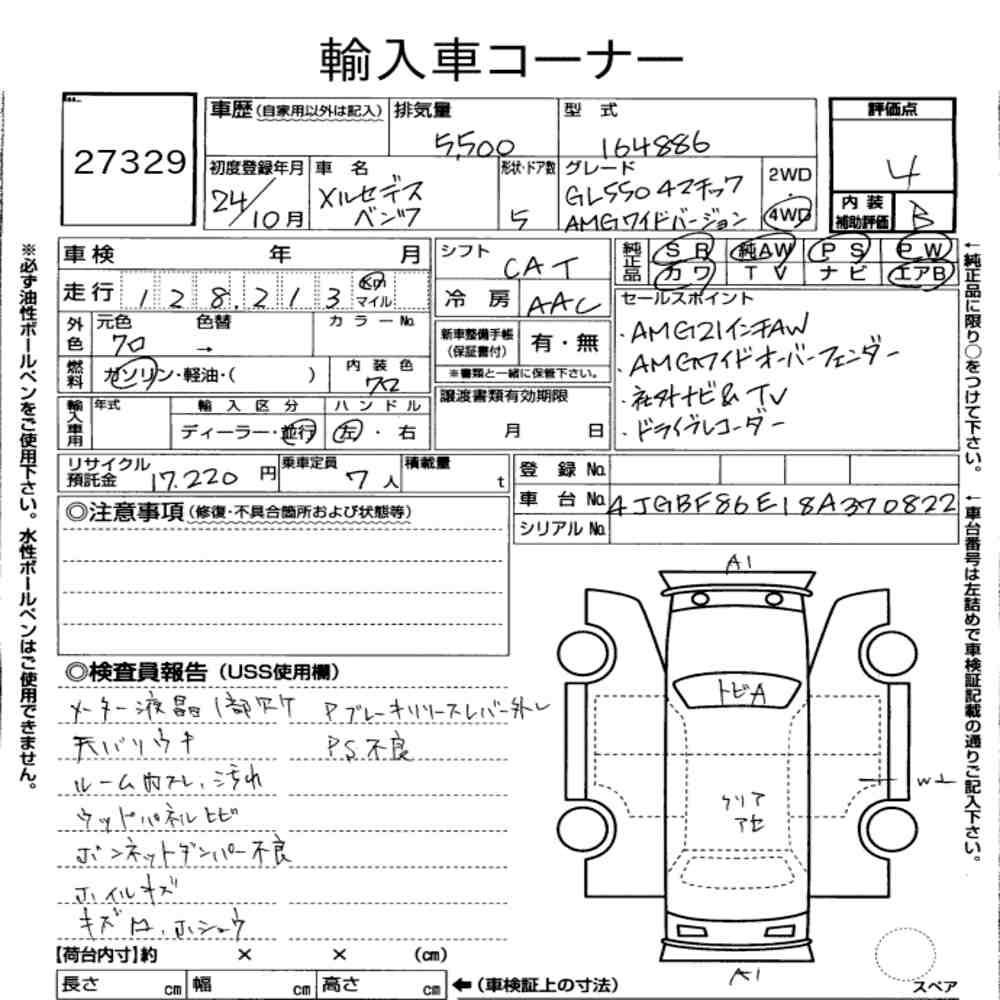 輸入車コーナー
27329
車歴(自家用以外は記入) 排気量 5,500 型 式 164886
初度登録年月 24/10月 車 名 メルセデス ベンツ 形状・ドア数 5 グレード GL550 4マチック AMGワイドバージョン 2WD 4WD
評価点 4
内装補助評価 B
車検 年 月
走行 128,213 Km マイル
外色 元色 クロ 色替 → カラーNo.
燃料 ガソリン・軽油・( ) 内装色 クロ
輸入車用 年式 輸入区分 ディーラー・並行 ハンドル 左・右
シフト CAT
冷房 AAC
新車整備手帳(保証書付) 有・無
※書類と一緒に保管下さい。
譲渡書類有効期限
月 日
純正品 SR 純AW PS PW
カワ TV ナビ エアB
セールスポイント
・AMG21インチAW
・AMGワイドオーバーフェンダー
・社外ナビ&TV
・ドライブレコーダー
リサイクル預託金 17,220円 乗車定員 7人 積載量 t
登録No.
車台No. 4JGBF86E18A370822
シリアルNo.
◎注意事項(修復・不具合箇所および状態等)
◎検査員報告(USS使用欄)
メーター液晶1部欠ケ Pブレーキリリースレバー外レ
天バリウキ PS不良
ルーム内スレ、汚れ
ウッドパネルヒビ
ボンネットダンパー不良
ホイルキズ
キズ凹、ホシュウ
A1
トビA
クリア
アセ
W1
A1
スペア
【荷台内寸】約 × × (cm)
長さ cm 幅 cm 高さ cm ←(車検証上の寸法)
※必ず油性ボールペンをご使用下さい。水性ボールペンはご使用できません。
←純正品に限り○をつけて下さい。
←車台番号は左詰めで車検証記載の通りご記入下さい。